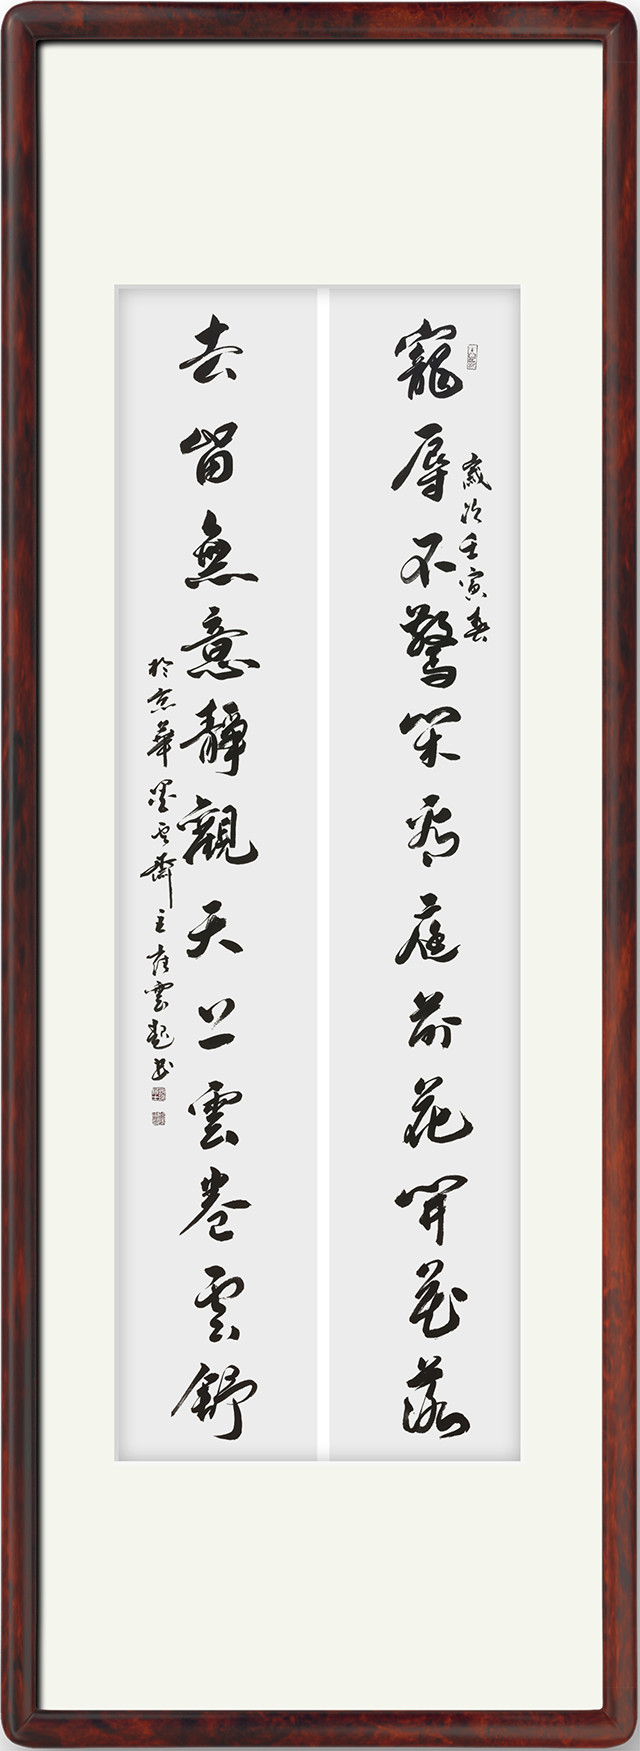 寵辱不驚閑看庭前花開花落
歲次壬寅春
去留無意靜觀天上雲卷雲舒
於京華墨 齋主 雲 书